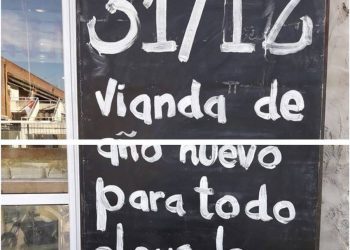 31/12
Vianda de
año nuevo
para todo